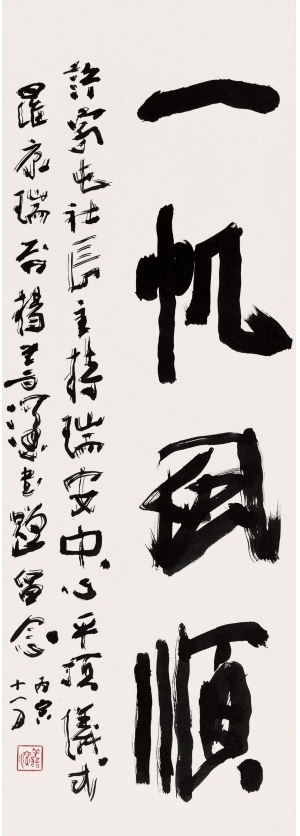 一帆風順
許家屯社長主持瑞安中心平頂儀式
羅康瑞
題留念
丙寅
十一月